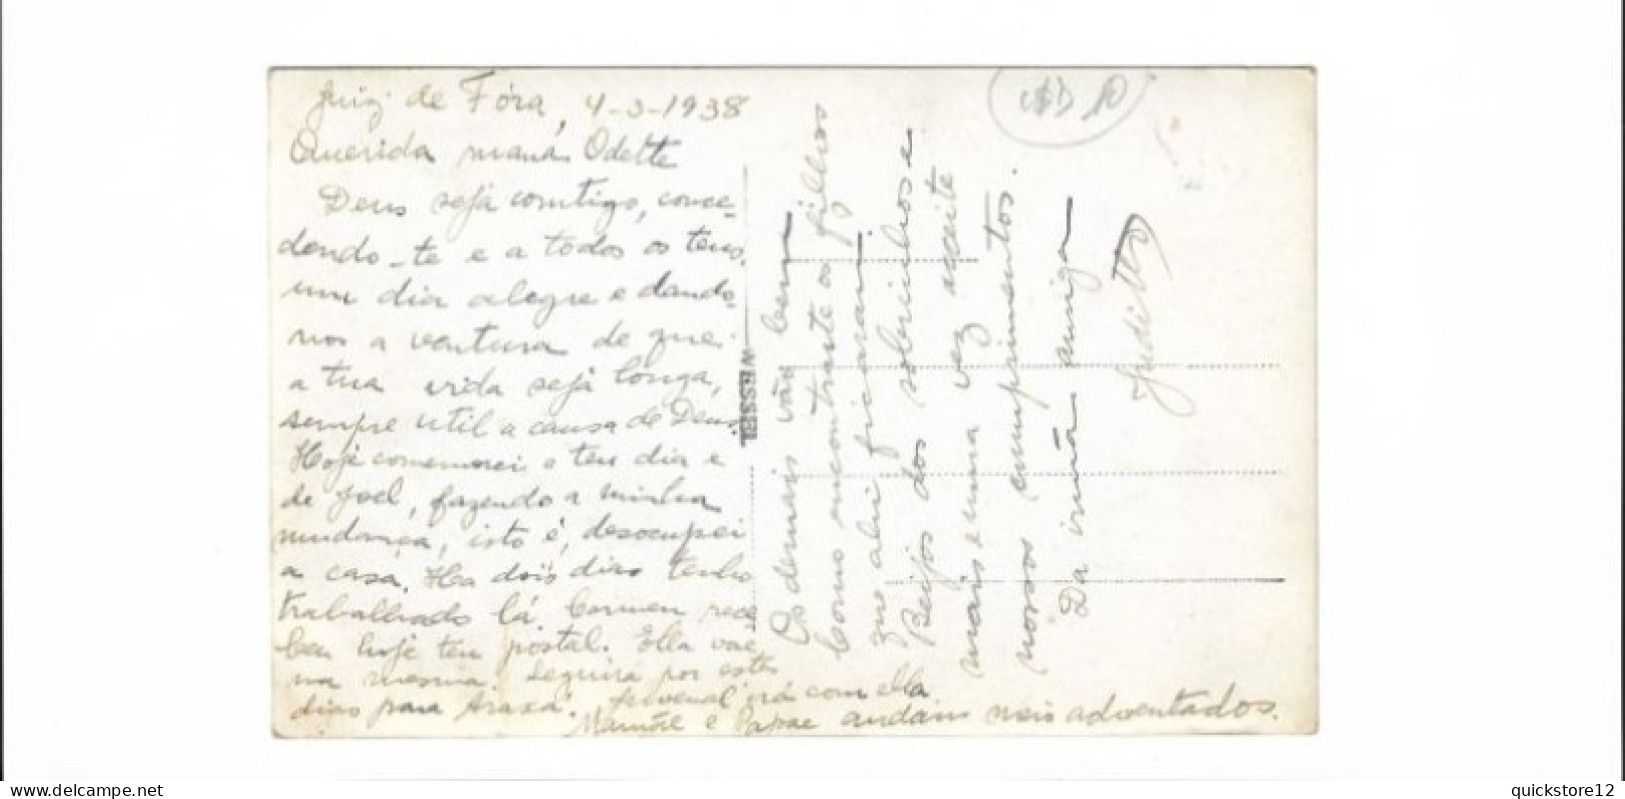 Juiz de Fóra, 4-3-1938
Querida maná Odette
Deus seja comtigo, conce-
dendo-te e a todos os teus,
um dia alegre e dando-
nos a ventura de que
a tua vida seja longa,
sempre util a causa de Deus.
Hoje comemorei o teu dia e
de Joel, fazendo a minha
mudança, isto é, desocupei
a casa. Ha dois dias tenho
trabalhado lá. Carmen rece
beu hoje teu postal. Ella vae
na mesma. Seguira por estes
dias para Araxá. Juvenal irá com ella
Mamãe e Papae andam meio adoentados.
Os demais vão bem
Como encontraste os filhos
que ahi ficaram.
Beijos dos sobrinhos e
mais uma vez acceite
nossos cumprimentos.
Da irmã amiga
Judith
WESSEL
10
www.delcampe.net
quickstore12